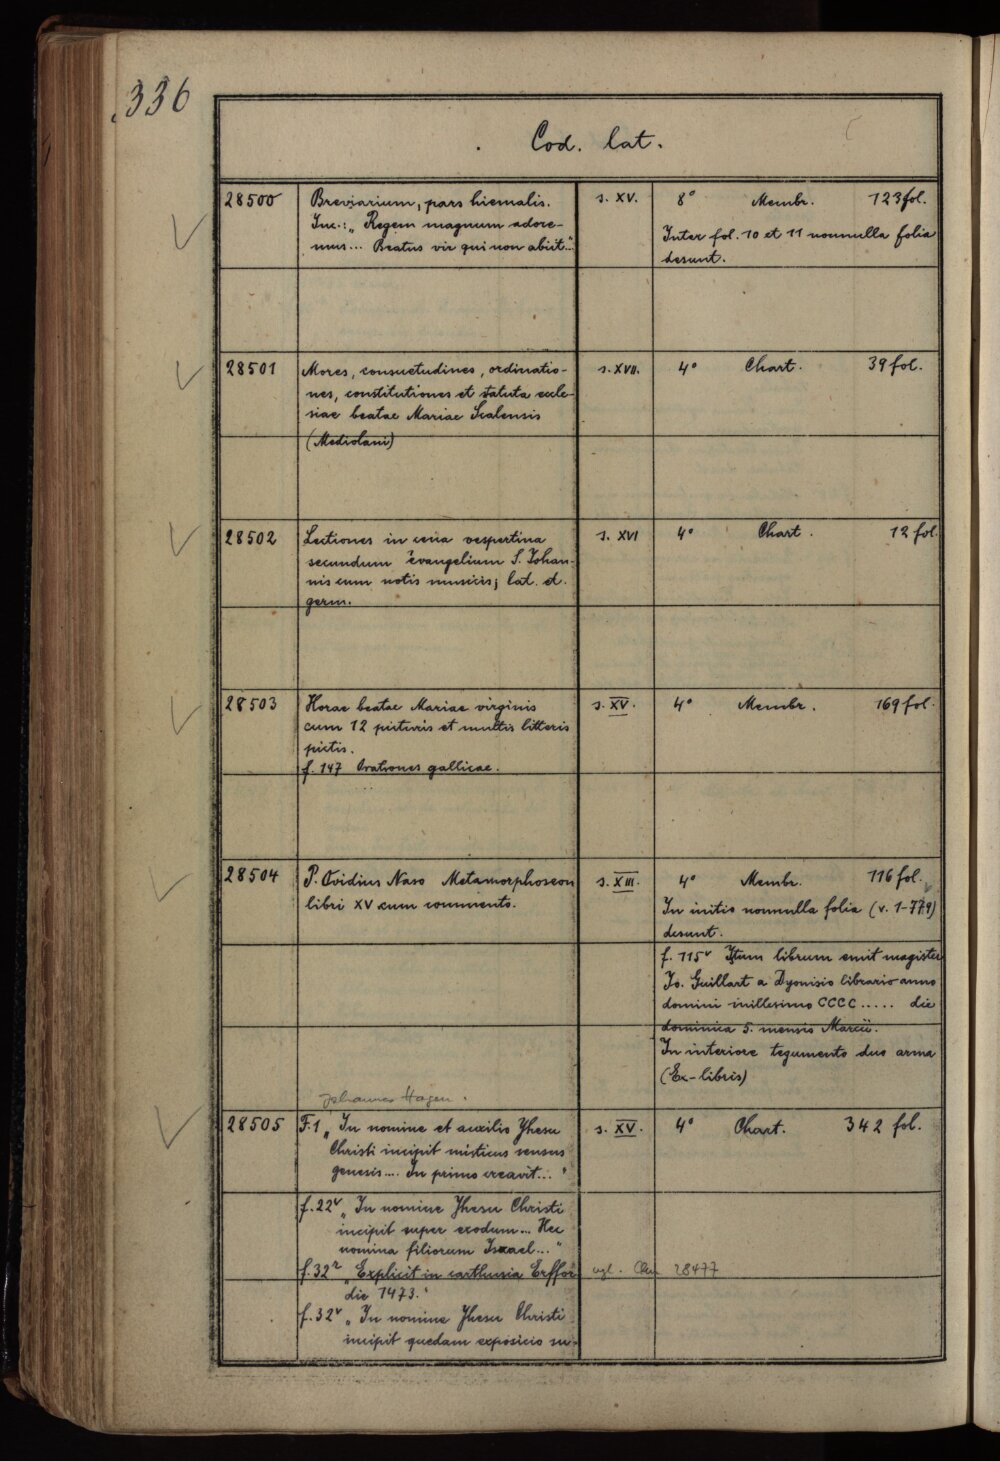 336
Cod. lat.
28500
Breviarium, pars hiemalis.
Inc.: „Regem magnum adore-
mus... Beatus vir qui non abiit..“
s. XV.
8° Membr. 123 fol.
Inter fol. 10 et 11 nonnulla folia
desunt.
28501
Mores, consuetudines, ordinatio-
nes, constitutiones et statuta eccle-
siae beatae Mariae Scalensis
(Mediolani)
s. XVII.
4° Chart. 39 fol.
28502
Lectiones in cena vespertina
secundum evangelium S. Johan-
nis cum notis musicis; lat. et
germ.
s. XVI
4° Chart. 12 fol.
28503
Horae beatae Mariae virginis
cum 12 picturis et multis litteris
pictis.
f. 147 Orationes gallicae.
s. XV.
4° Membr. 169 fol.
28504
P. Ovidius Naso Metamorphoseon
libri XV cum commento.
s. XIII.
4° Membr. 116 fol.
In initio nonnulla folia (v. 1-779)
desunt.
f. 115v Istum librum emit magister
Jo. Guillart a Dyonisio librario anno
domini millesimo CCCC..... die
dominica 5. mensis Marcii.
In interiore tegumento duo arma
(Ex-libris)
Johannes Hagen.
28505
F. 1 „In nomine et auxilio Jhesu
Christi incipit misticus sensus
genesis.... In primo creavit...“
s. XV.
4° Chart. 342 fol.
f. 22v „In nomine Jhesu Christi
incipit super exodum... Hec
nomina filiorum Israel...“
f. 32r „Explicit in carthusia Erffor
die 1473.“
vgl. Clm 28477
f. 32v „In nomine Jhesu Christi
incipit quedam exposicio su-